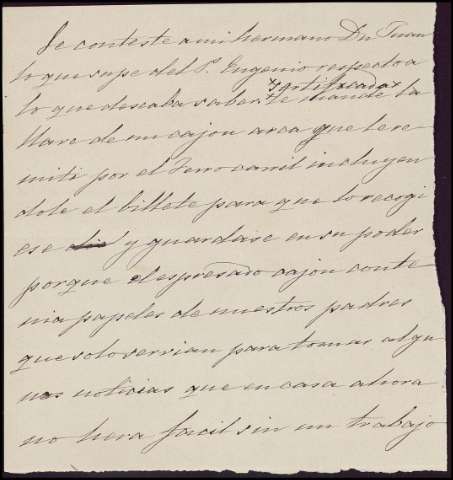 Le conteste a mi hermano Dn Juan
lo que supe del P. Eugenio respecto a
x y certificada x
lo que deseaba saber le mande la
llave de mi cajon arca que le re
miti por el Ferro carril incluyen
dole el billete para que lo recogi
ese y guardase en su poder
porque el espresado cajon conte
nia papeles de nuestros padres
que solo servian para tomar algu
nas noticias que en casa ahora
no hera facil sin un trabajo